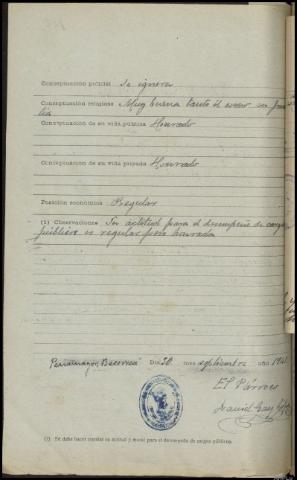 Conceptuación policial Se ignora
Conceptuación religiosa Muy buena tanto él como su fami
lia
Conceptuación de su vida pública Honrado
Conceptuación de su vida privada Honrado
Posición económica Regular
(1) Observaciones Su actitud para el desempeño de cargo
público es regular pero honrada
Penamayor, Becerreá Día 20 mes septiembre año 194
El Párroco
David
(1) Se debe hacer constar su actitud y moral para el desempeño de cargos públicos.